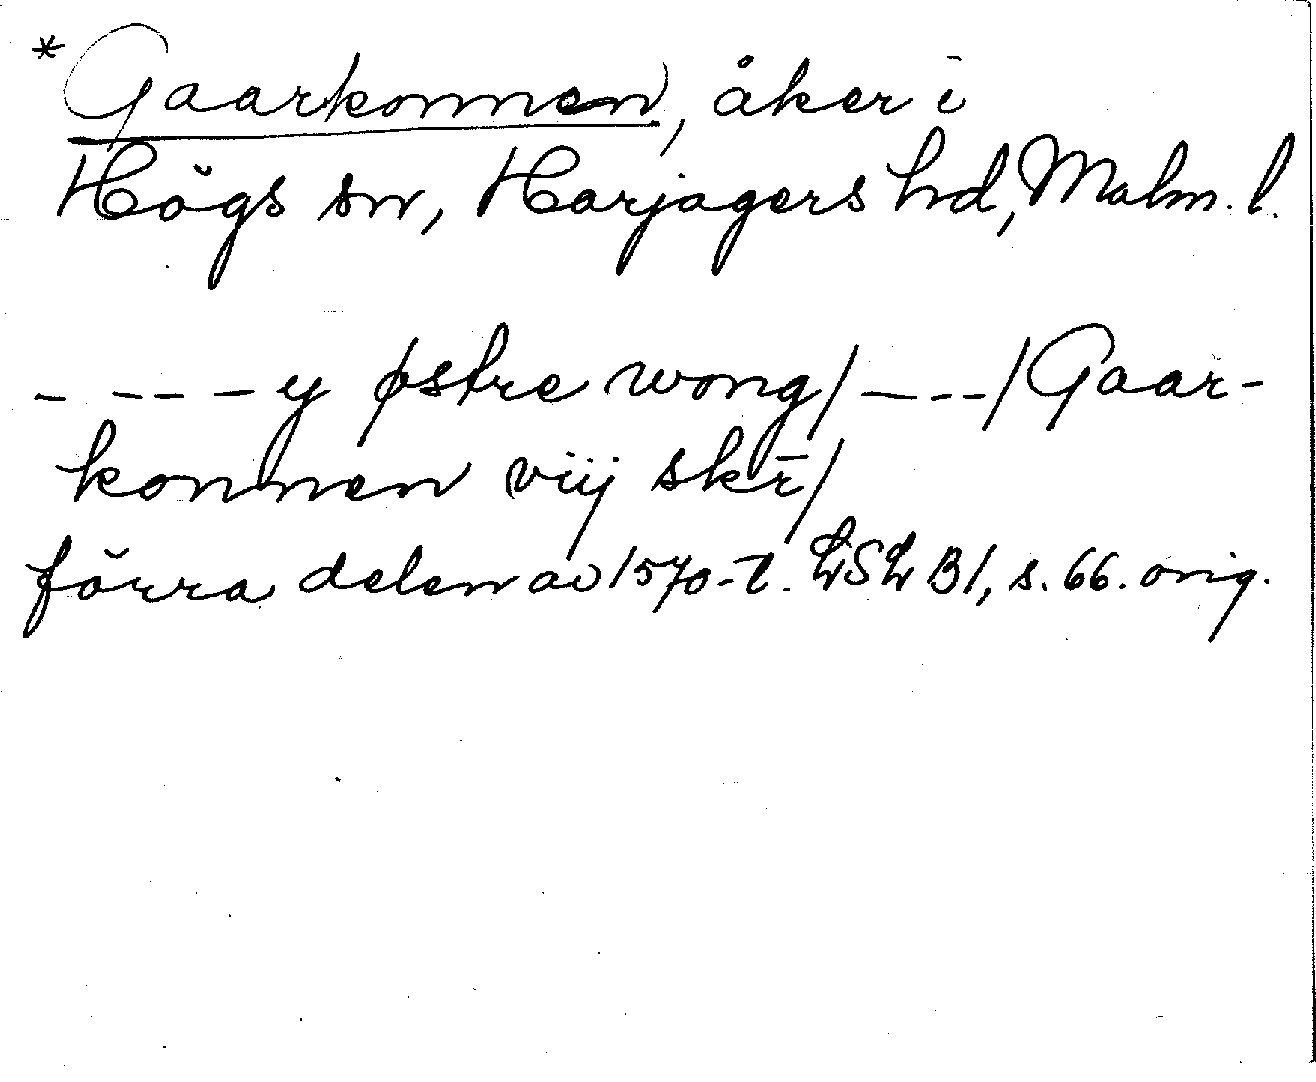 *Gaarkonnen, åker i
Högs sn, Harjagers hd, Malm. l.
_ _ _ _ y østre wong/ _ _ _ / Gaar-
konnen viij skr̄/
förra delen av 1570-t. LSL B1, s. 66. orig.